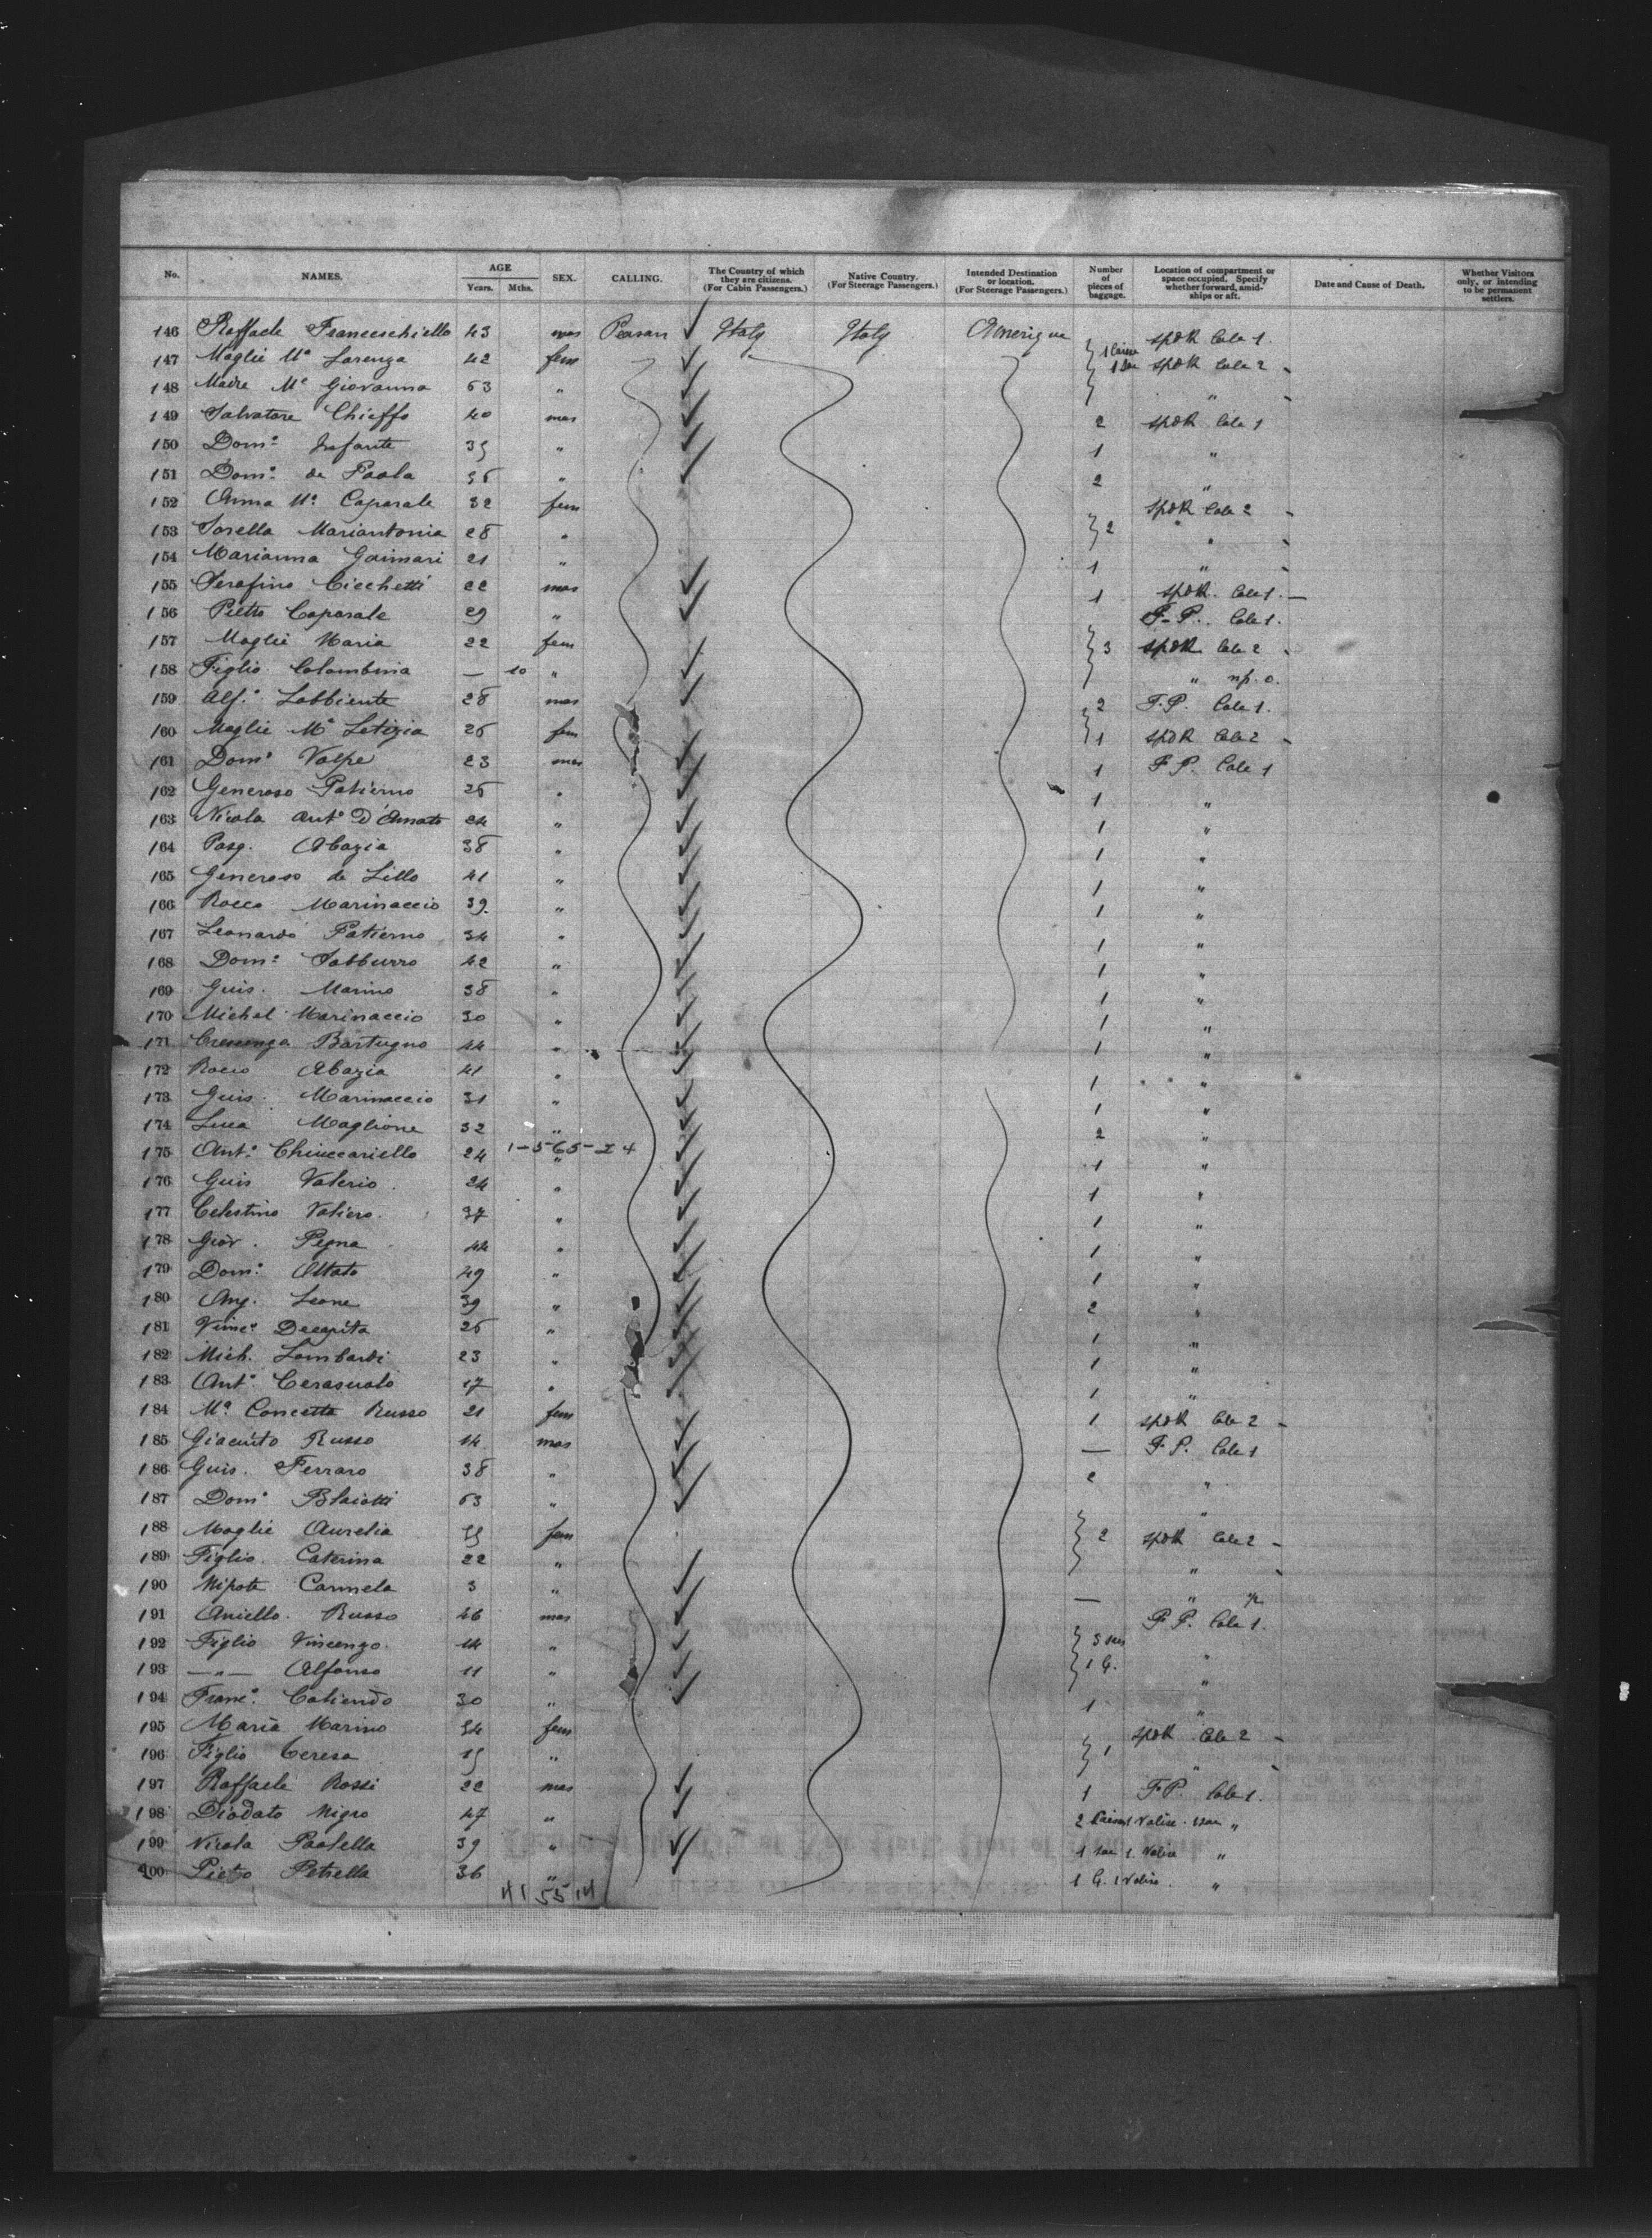 No. NAMES. AGE Years. Mths. SEX. CALLING. The Country of which they are citizens. (For Cabin Passengers.) Native Country. (For Steerage Passengers.) Intended Destination or location. (For Steerage Passengers.) Number of pieces of baggage. Location of compartment or space occupied. Specify whether forward, amidships or aft. Date and Cause of Death. Whether Visitors only, or intending to be permanent settlers.
146 Raffaele Franceschiello 43 mas Peasan Italy Italy Amerique
147 Moglie Mª Lorenza 42 fem
148 Madre Mª Giovanna 63 "
149 Salvatore Chieffo 40 mas 2
150 Domº Infante 35 " 1 "
151 Domº de Paola 36 " 2 "
152 Anna Mª Caporale 32 fem
153 Sorella Mariantonia 28 " 2 "
154 Marianna Gaimari 21 " 1 "
155 Serafino Cicchetti 22 mas 1
156 Pietro Caporale 29 " F.P. Cale 1.
157 Moglie Maria 22 fem 3
158 Figlio Colombina — 10 "
159 Alfº Labbiente 28 mas 2 F.P. Cale 1.
160 Moglie Mª Letizia 26 fem 1
161 Domº Volpe 23 mas 1 F.P. Cale 1
162 Generoso Patierno 26 " 1 "
163 Nicola Antº D'Amato 24 " 1 "
164 Pasq. Abazia 38 " 1 "
165 Generoso de Lillo 41 " 1 "
166 Rocco Marinaccio 39 " 1 "
167 Leonardo Patierno 34 " 1 "
168 Domº Tabburro 42 " 1 "
169 Guis. Marino 38 " 1 "
170 Michel Marinaccio 30 " 1 "
171 Bartugno 44 " 1 "
172 Rocco Abazia 41 " 1 "
173 Guis. Marinaccio 31 " 1 "
174 Luca Maglione 32 " 2 "
175 Antº Chiuccariello 24 1-565-24 " 1 "
176 Guis Valerio 24 " 1 "
177 Celestino 37 " 1 "
178 Giov. Pegna 44 " 1 "
179 Domº 49 " 1 "
180 Ang. Leone 39 " 2 "
181 Vincº 26 " 1 "
182 Mich. Lombardi 23 " 1 "
183 Antº Cerasuolo 17 " 1 "
184 Mª Concetta Russo 21 fem 1
185 Giacinto Russo 14 mas — F.P. Cale 1
186 Guis. Ferraro 38 " 2 "
187 Domº Blaiotti 63 " "
188 Moglie Aurelia fem 2
189 Figlio Caterina 22 " "
190 Nipote Carmela 3 " — "
191 Aniello Russo 46 mas F.P. Cale 1.
192 Figlio Vincenzo 14 " "
193 —"— Alfonso 11 " 1 "
194 Francº Caliendo 30 " 1 "
195 Maria Marino 34 fem
196 Figlio Teresa 15 " 1 "
197 Raffaele Rossi 22 mas 1 F.P. Cale 1.
198 Diodato Nigro 47 " "
199 Nicola Paolella 39 " "
200 Pietro Petrella 36 " "
41 55 14